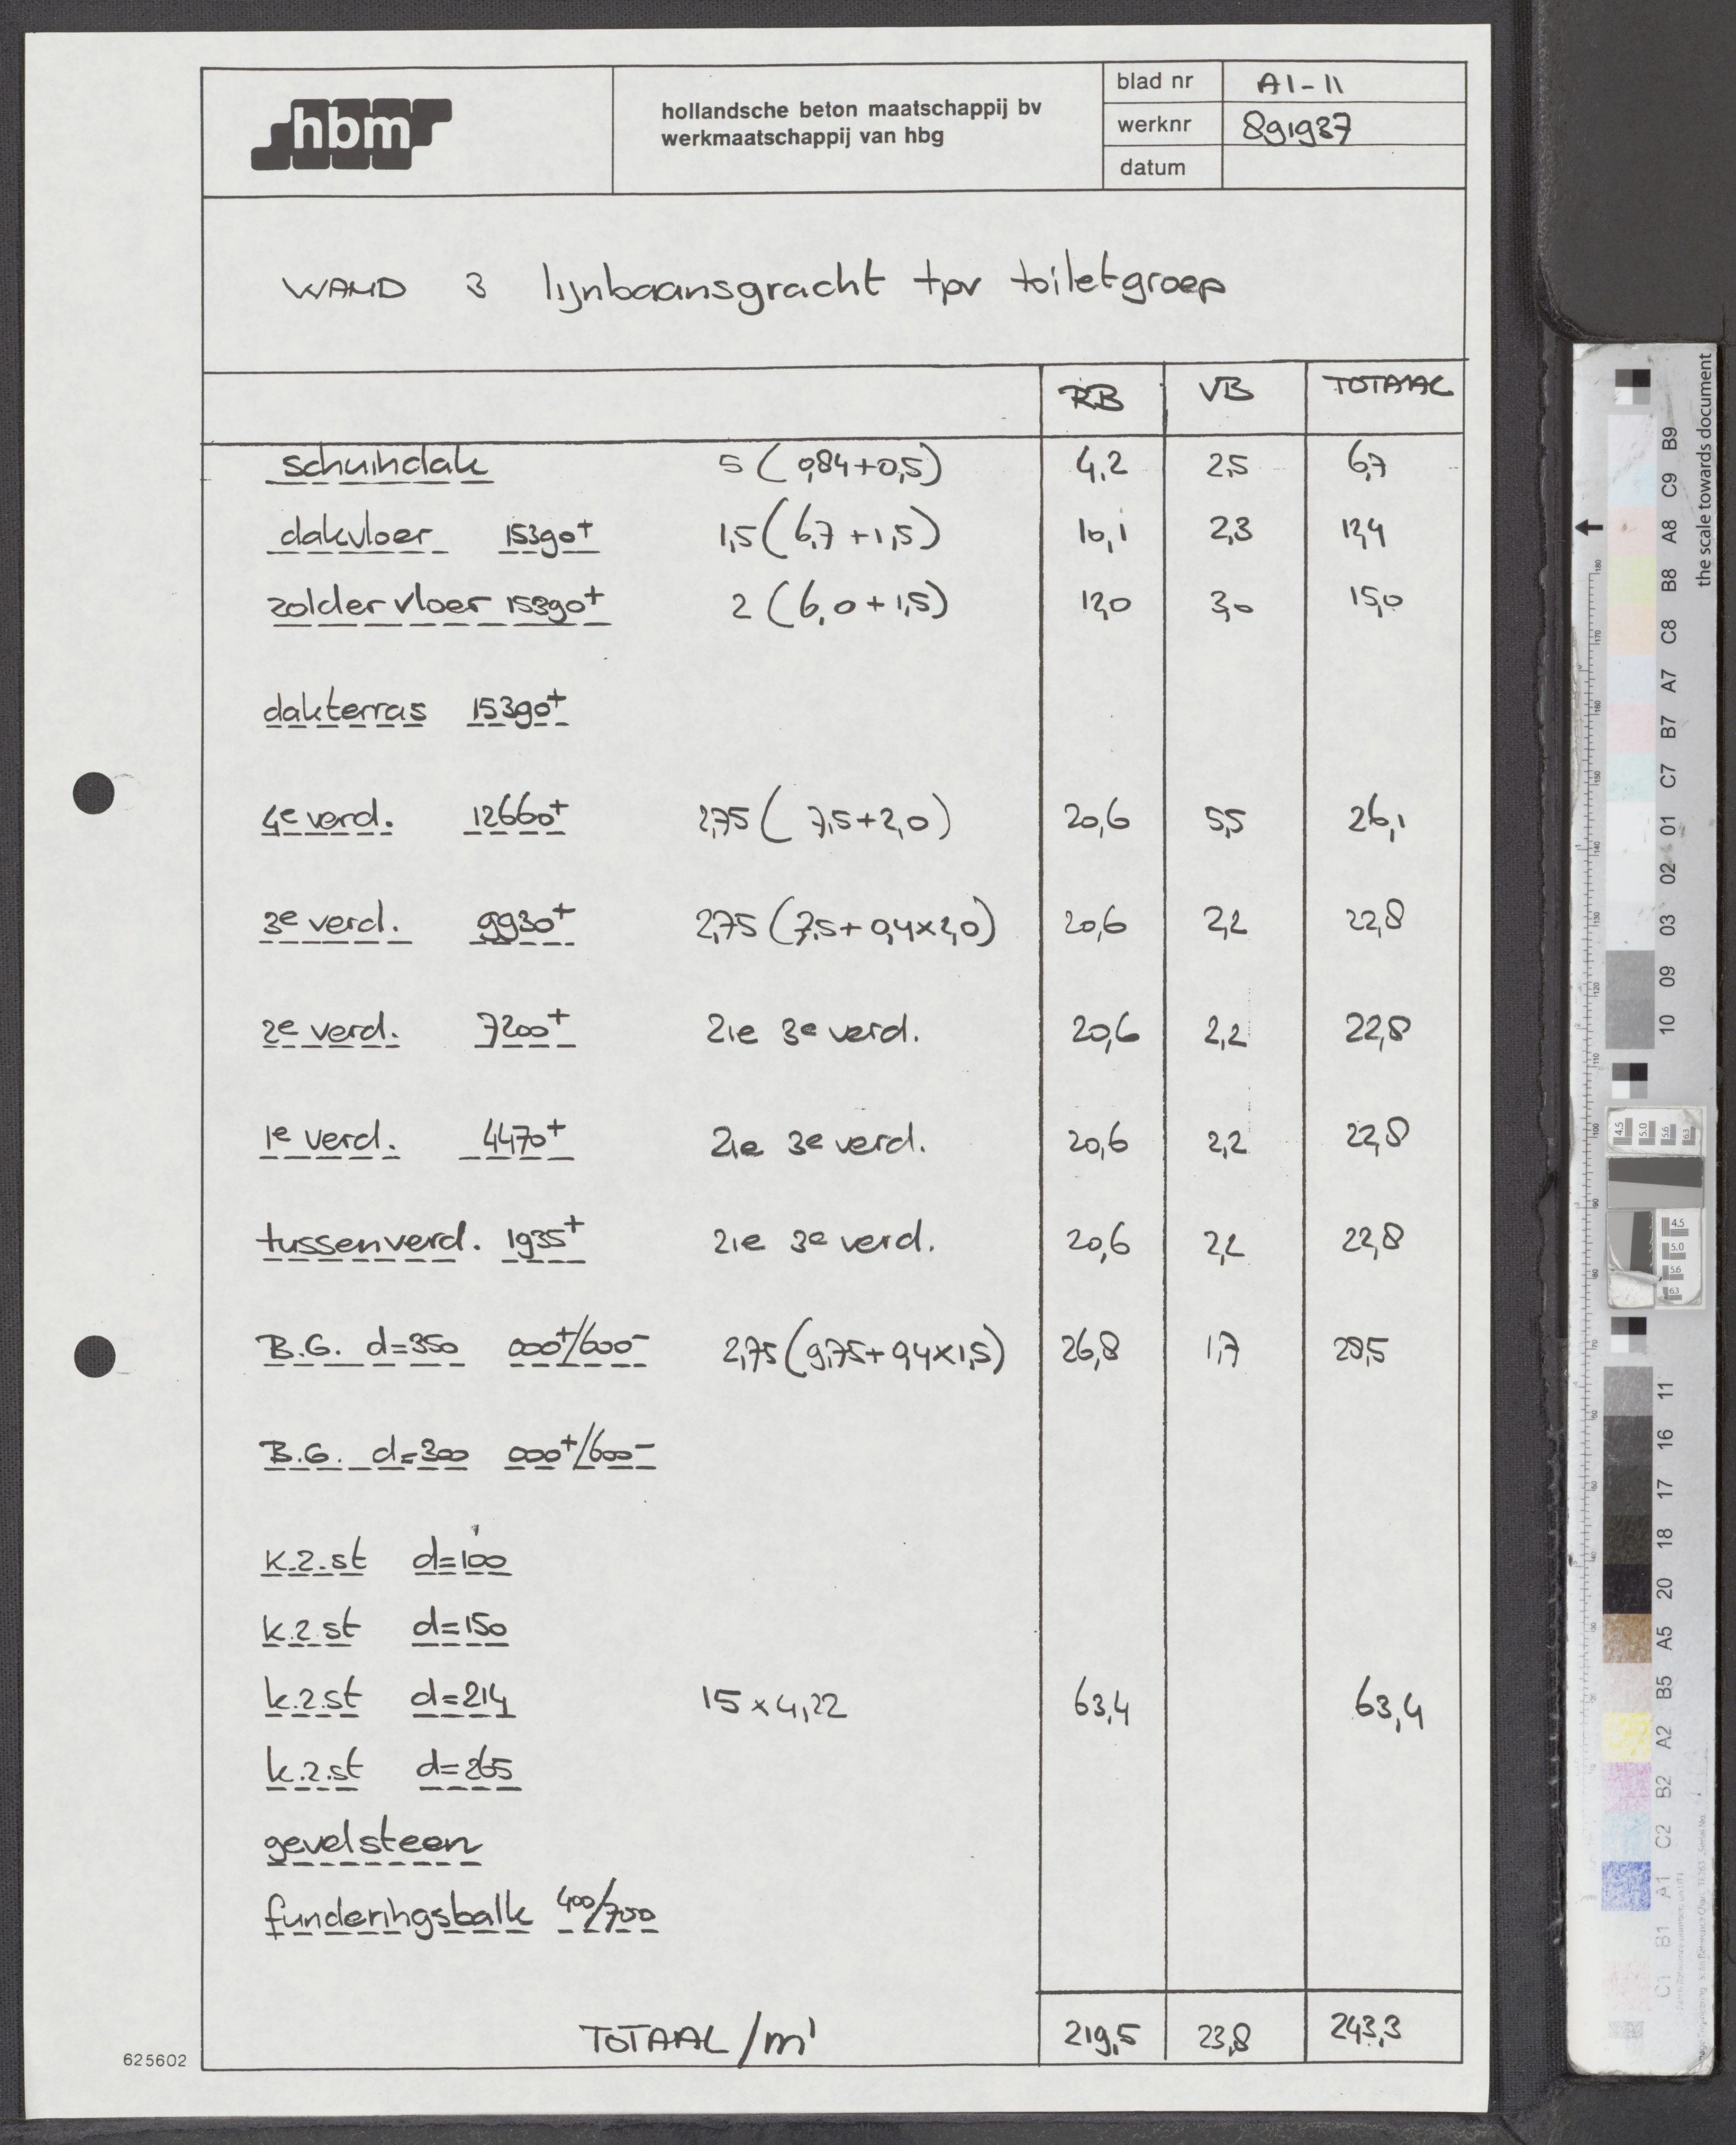 hbm
hollandsche beton maatschappij bv
werkmaatschappij van hbg
blad nr A1-11
werknr 891937
datum
WAND 3 lijnbaansgracht tpv toiletgroep
RB VB TOTAAL
schuindak 5 (0,84+0,5) 4,2 2,5 6,7
dakvloer 15390+ 1,5 (6,7+1,5) 10,1 2,3 12,4
zoldervloer 15390+ 2 (6,0+1,5) 12,0 3,0 15,0
dakterras 15390+
4e verd. 12660+ 2,75 (7,5+2,0) 20,6 5,5 26,1
3e verd. 9930+ 2,75 (7,5+0,4x2,0) 20,6 2,2 22,8
2e verd. 7200+ zie 3e verd. 20,6 2,2 22,8
1e verd. 4470+ zie 3e verd. 20,6 2,2 22,8
tussenverd. 1935+ zie 3e verd. 20,6 2,2 22,8
B.G. d=350 000+/600- 2,75 (9,75+0,4x1,5) 26,8 1,7 28,5
B.G. d=300 000+/600-
k.z.st d=100
k.z.st d=150
k.z.st d=214 15 x 4,22 63,4 63,4
k.z.st d=265
gevelsteen
funderingsbalk 400/700
TOTAAL /m1 219,5 23,8 243,3
625602
the scale towards document
B9
C9
A8
B8
C8
A7
B7
C7
01
02
03
09
10
11
16
17
18
20
A5
B5
A2
B2
C2
A1
B1
C1